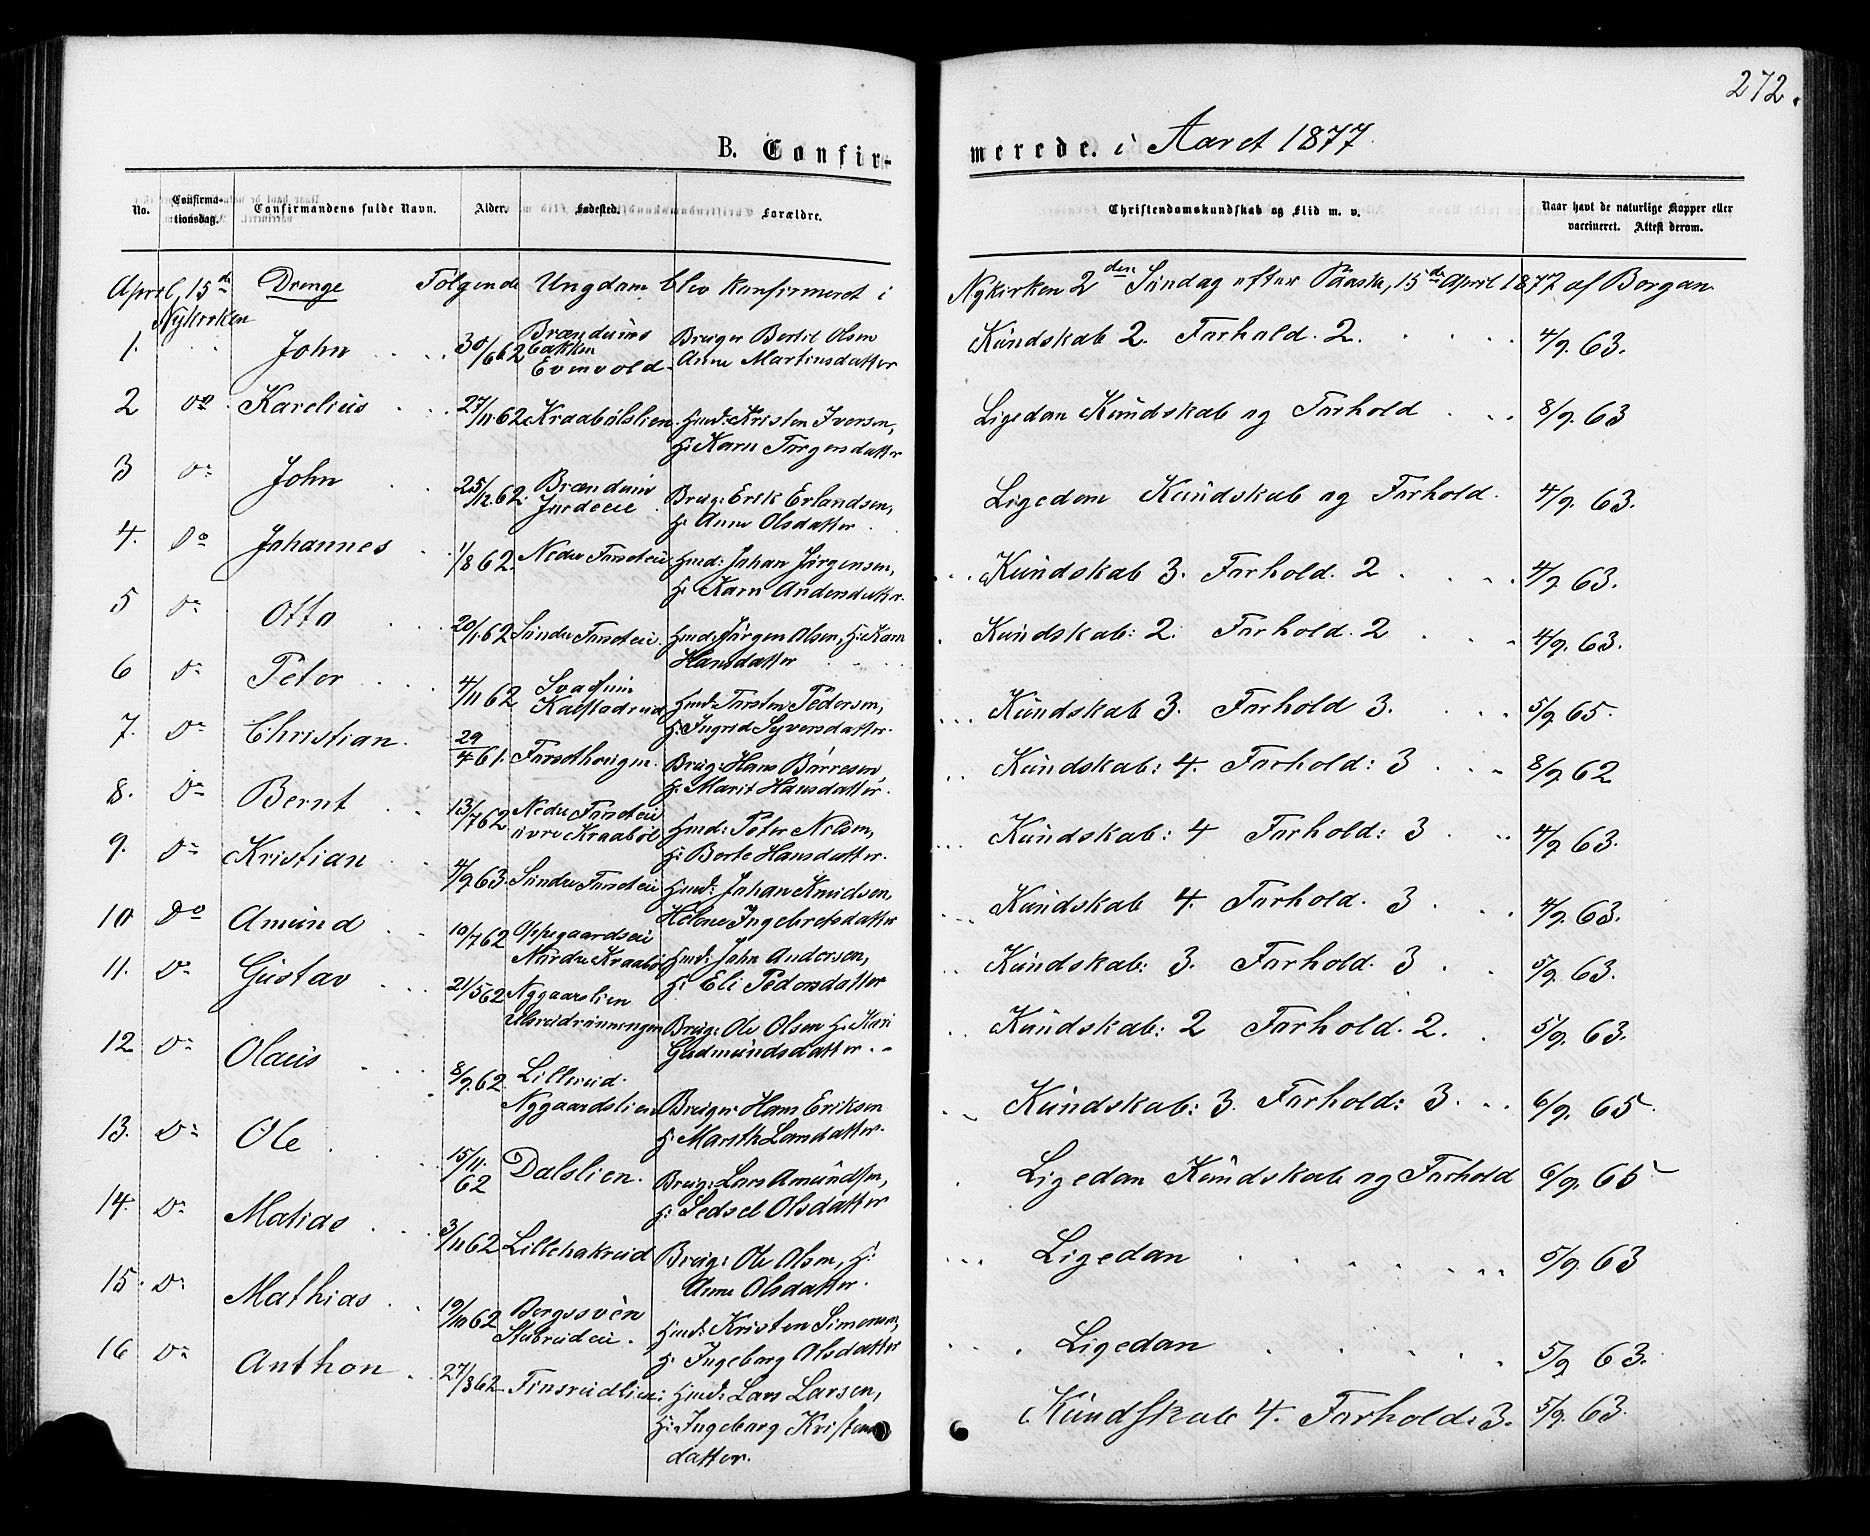 272.
B. Confirmerede. i Aaret 1877.
No. Confirmationsdag. Confirmandens fulde Navn. Alder. Fødested. Forældre. Christendomskundskab og Flid m. v. Naar havt de naturlige Kopper eller vaccineret. Attest derom.
April, 15de Drenge Følgende Ungdom blev konfirmeret i Nykirken 2den Søndag efter Paaske, 15de April 1877 af Borgan
Nykirken
1. John 30/6 62 Brændvins bakken Evenvold Bruger Bertil Olsen Anne Martinsdatter Kundskab 2. Forhold. 2. 4/9. 63.
2 do Karelius 27/11 62 Kraabølslien Hmd: Kristen Iversen, H: Karn Torgersdatter Ligedan Kundskab og Forhold 8/9. 63
3 do John 25/12. 62. Brændvin Jordeie Brug: Erik Erlandsen, H: Anne Olsdatter Ligedan Kundskab og Forhold. 4/9. 63.
4. Do Johannes 1/8 62. Nedre Forseteie Hmd: Johan Jørgensen, H: Karn Andersdatter. Kundskab 3. Forhold. 2 4/9. 63.
5 do Otto 20/1. 62 Søndre Forseteie Hmd: Jørgen Olsen, H: Karn Hansdatter Kundskab: 2. Forhold. 2 4/9. 63.
6 do Peter 4/11 62 Kalstadrud Hmd: Torsten Pedersen, H: Ingrid Syversdatter. Kundskab 3. Forhold 3. 5/9 65.
7. do Christian. 29/4 61. Forsethougen. Brug: Hans Børresen, H: Marit Hansdatter. Kundskab: 4. Forhold: 3 8/9 62
8. do Bernt 13/7 62 Nedre Forseteie øvre Kraabøl Hmd: Peter Nilsen, H: Berte Hansdatter. Kundskab: 4 Forhold: 3 4/9 63.
9. do Kristian 4/9 63. Søndre Forseteie Hmd: Johan Knudsen, Helene Ingebretsdatter Kundskab 4. Forhold. 3 4/9 63.
10 Do Amund 10/7 62 Oppegaardseie Nordre Kraabøl Hmd: John Andersen, H: Eli Pedersdatter Kundskab: 3. Forhold. 3 5/9 63.
11. do Gustav 21/5 62 Nygaardslien Ulsrudrønningen Brug: Ole Olsen H: Kari Gudmundsdatter Kundskab: 2 Forhold. 2. 5/9. 63.
12 do Olaus 8/9. 62. Lillerud. Nygaardslien Bruger Hans Eriksen H: Marith Larsdatter. Kundskab: 3. Forhold: 3. 6/9. 65.
13. Do Ole 15/11. 62 Dalslien. Brug: Lars Amundsen, H: Sedsel Olsdatter Ligedan Kundskab og Forhold 6/9. 65
14. do Matias 3/11 62 Lillehakrud Brug: Ole Olsen, H: Anne Olsdatter. Ligedan 5/9. 63
15. do Mathias 19/10 62 Bergssvèn Stubrudeie. Hmd: Kristen Simensen, H: Ingeborg Olsdatter Ligedan 5/9 63.
16 do Anthon 27/3 62 Finsrudlien: Hmd: Lars Larsen, H: Ingeborg Kristensdatter. Kundskab 4. Forhold: 3. 5/9. 63.